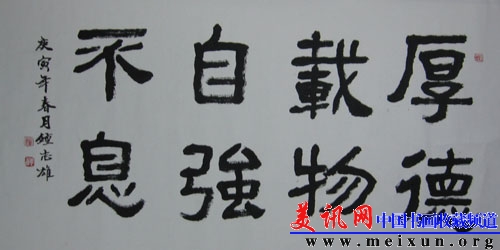 厚德
載物
自強
不息
庚寅年春月 志雄
美讯网 中国书画收藏频道
www.meixun.org